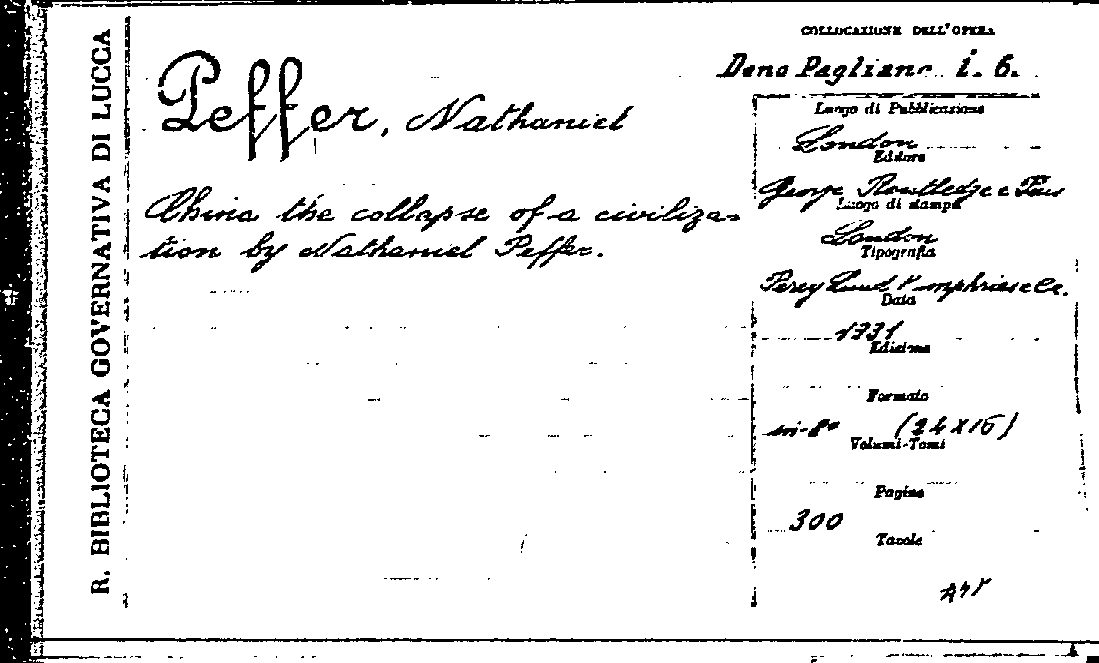 R. BIBLIOTECA GOVERNATIVA DI LUCCA
Peffer, Nathaniel
China the collapse of a civiliza-
tion by Nathaniel Peffer.
COLLOCAZIONE DELL'OPERA
Dono Pagliano i. 6.
Luogo di Pubblicazione
London
Editore
George Routledge e
Luogo di stampa
London
Tipografia
Percy Lund Humphries e Co.
Data
1931
Edizione
Formato
in-8° (24X16)
Volumi-Tomi
Pagine
300
Tavole